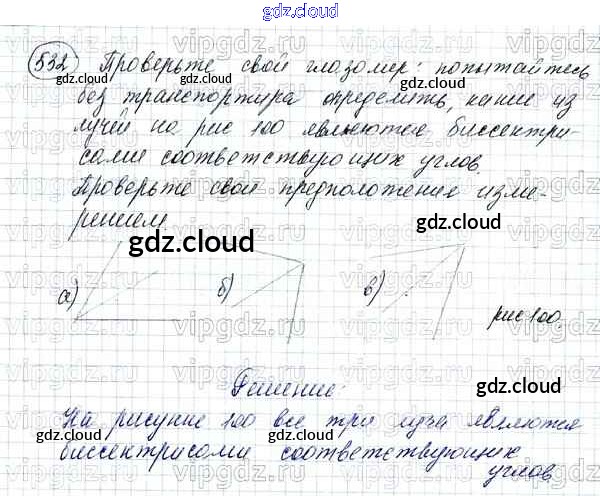 gdz.cloud
532 Проверьте свой глазомер: попытайтесь
без транспортира определить, какие из
лучей на рис 100 являются биссектри-
сами соответствующих углов.
Проверьте свои предположения изме-
рением
gdz.cloud
а) б) в)
рис 100.
Решение:
На рисунке 100 все три луча являются
биссектрисами соответствующих
углов